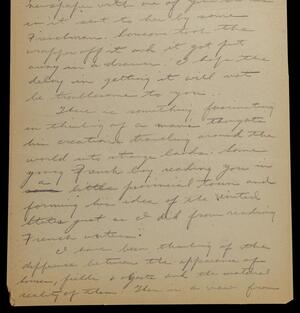 newspaper with one of your stories
in it sent to her by some
Frenchman. Someone took the
wrapper off it and it got put
away in a drawer. I hope the
delay in getting it will not
be troublesome to you.
There is something fascinating
in thinking of a mans thoughts
his creations traveling around the
world into strange lands. Some
young French boy reading you in
a little provincial town and
forming his idea of the United
States just as I did from reading
French writers.
I have been thinking of the
difference between the appearance of
homes, fields & objects and the material
reality of them. There is a view from